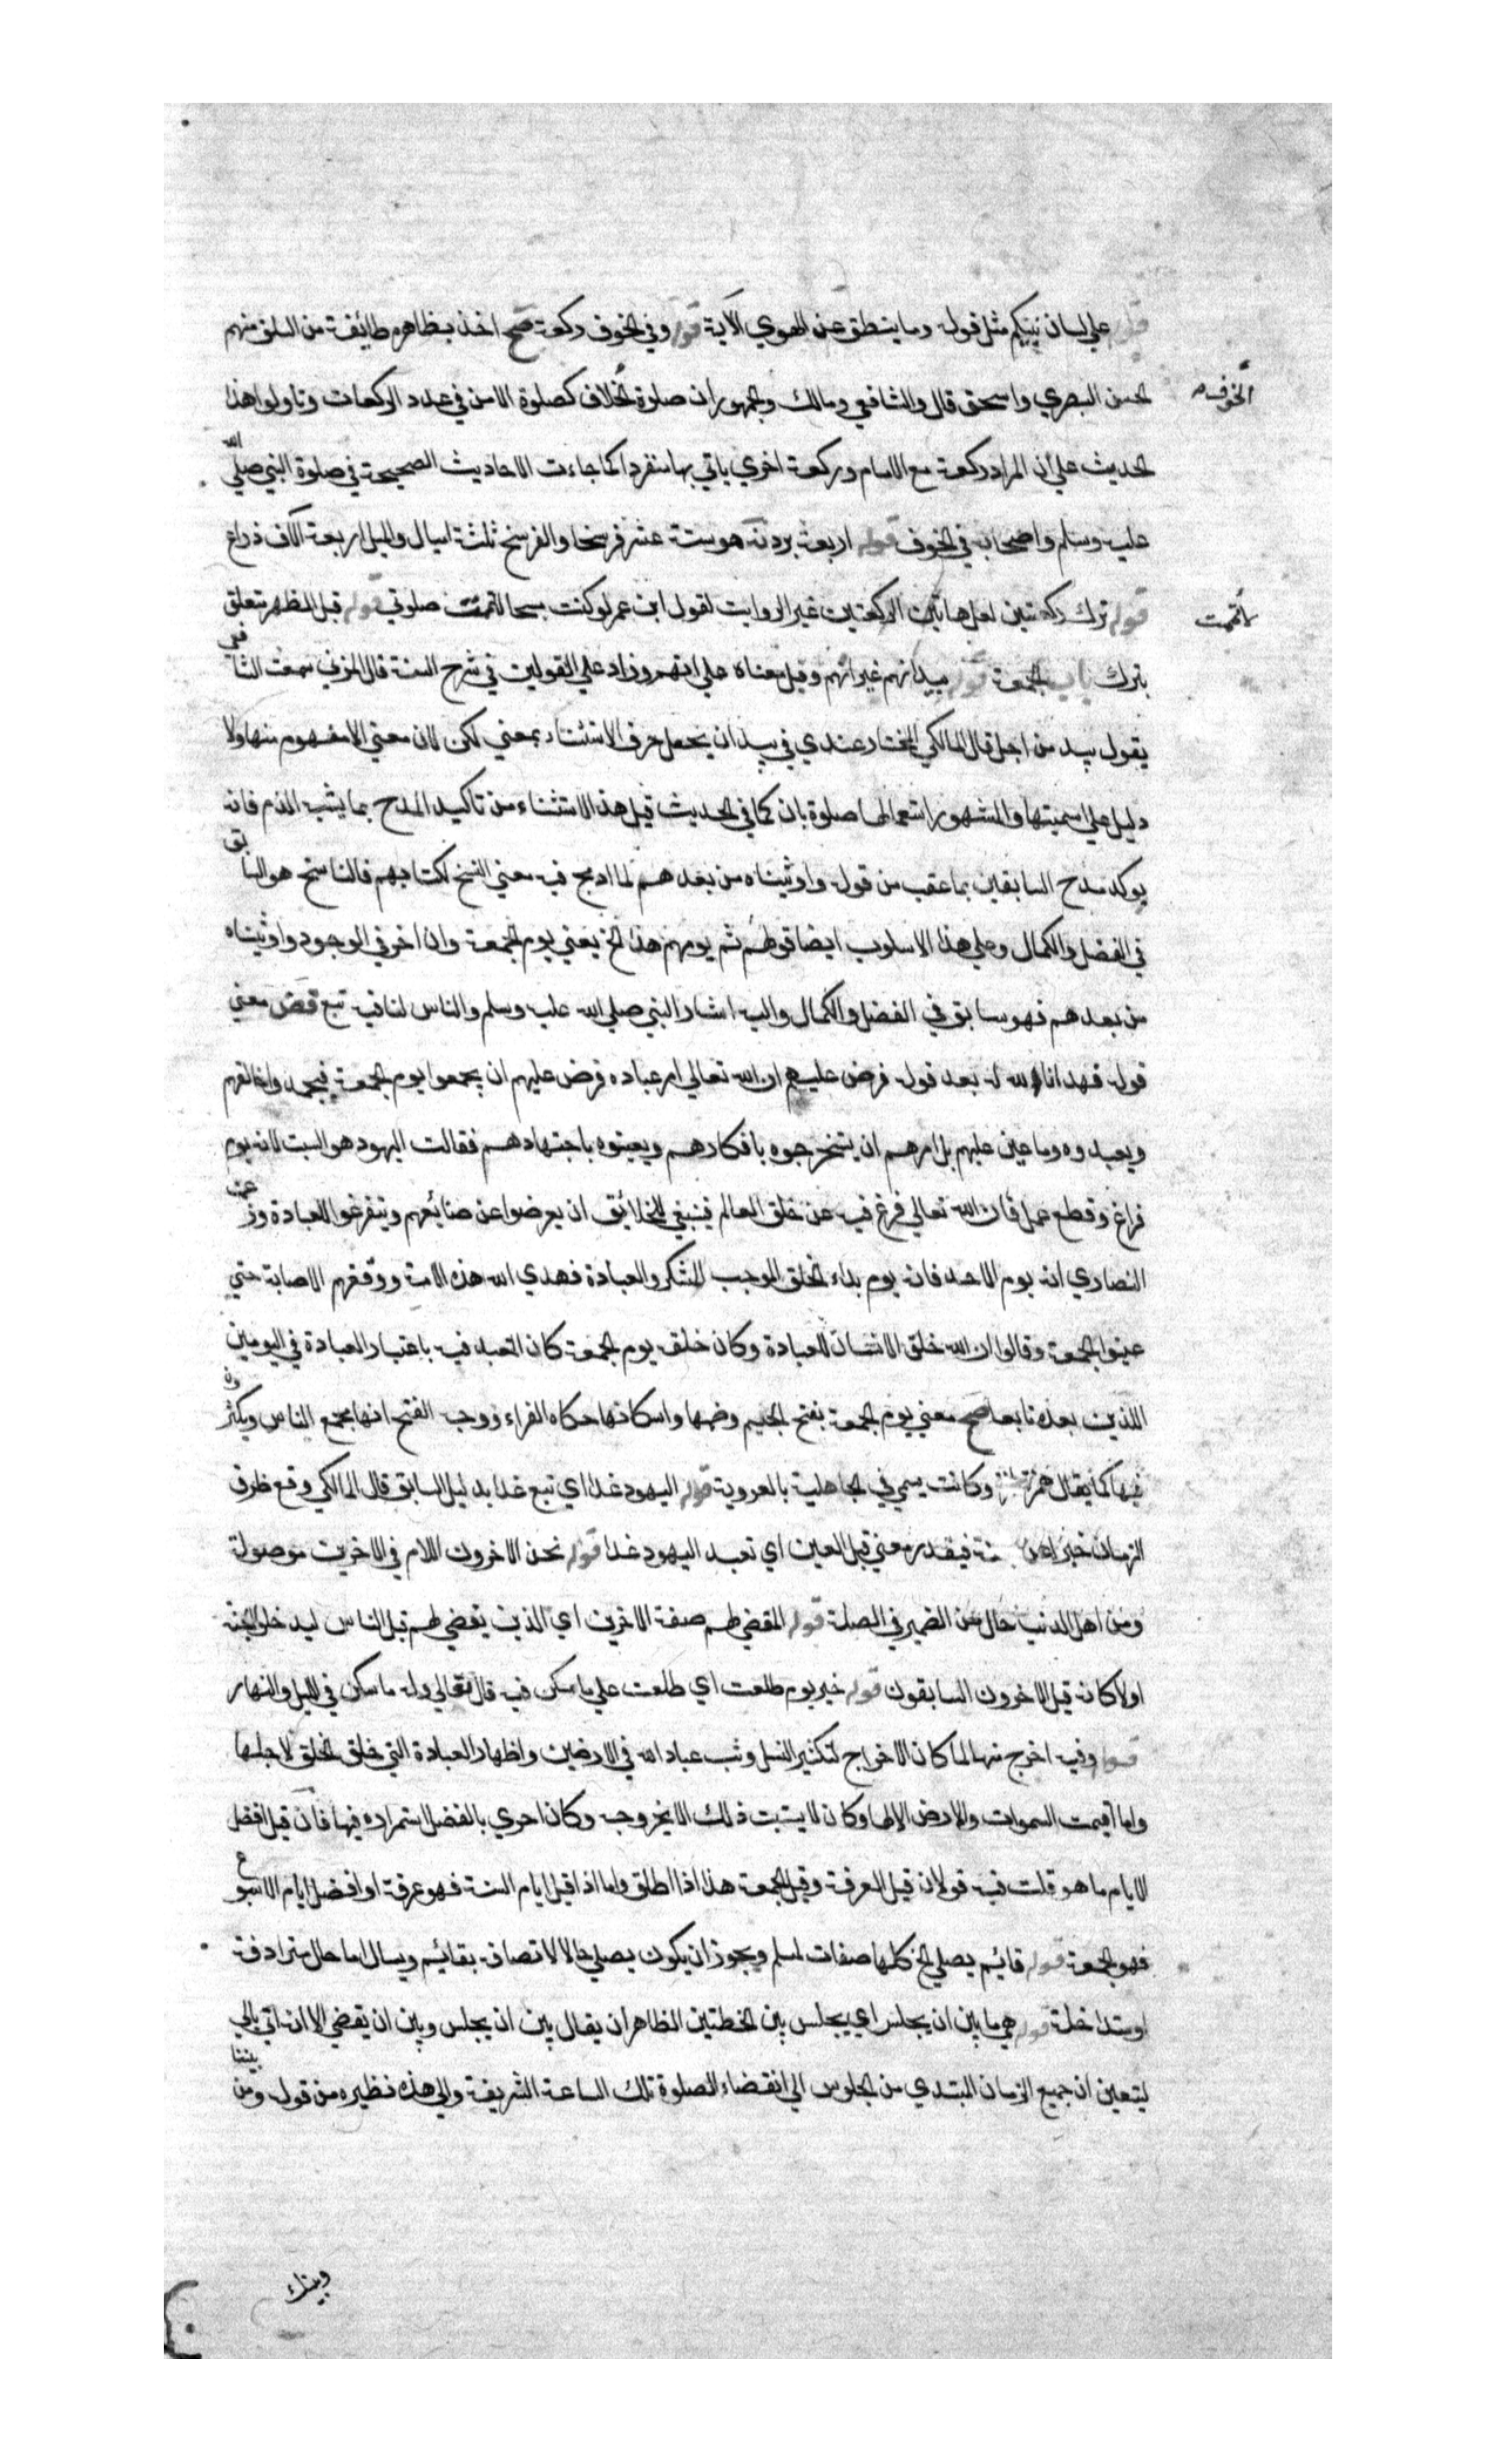 قوله علي لسان نبيكم مثل قوله وما ينطق عن الهوي الآية قوله وفي الخوف ركعة صح اخذ بظاهره طائفة من السلف منهم
الحسن البصري واسحق قال والشافعي ومالك والجمهور ان صلوة الخلاف كصلوة الامن في عدد الركعات وتاولوا هذا
الخوف صح
الحديث علي ان المراد ركعة مع الامام وركعة اخري ياتي بها منفردا كما جاءت الاحاديث الصحيحة في صلوة النبي صلي الله
عليه وسلم واصحابه في الخوف قوله اربعة برد نه هو ستة عشر فرسخا والفرسخ ثلثة اميال والميل اربعة الاف ذراع
قوله ترك ركعتين لعل هاتين الركعتين غير الرواتب لقول ابن عمر لو كنت مسبحا لاتممت صلوتي قوله قبل الظهر متعلق
لاتممت
بترك باب الجمعة قوله بيد انهم غير انهم وقيل معناه علي انهم وزاد علي القولين في شرح السنة قال المزني سمعت الشافعي
يقول بيد من اجل قال المالكي المختار عندي في بيد ان يجعل حرف الاستثناء بمعني لكن لان معني الا مفهوم منها ولا
دليل علي اسميتها والمشهور استعمالها صلوة بان كما في الحديث قيل هذا الاستثناء من تاكيد المدح بما يشبه الذم فانه
يوكد مدح السابقين بما عقب من قوله واوتيناه من بعدهم لما ادمج فيه معني النسخ لكتابهم فالناسخ هو السابق
في الفضل والكمال وعلي هذا الاسلوب ايضا قولهم ثم يومهم هذا الخ يعني يوم الجمعة وان اخر في الوجود واوتيناه
من بعدهم فهو سابق في الفضل والكمال واليه اشار النبي صلي الله عليه وسلم والناس لنا فيه تبع قض معني
قوله فهدانا الله له بعد قوله فرض عليهم ان الله تعالي امر عباده فرض عليهم ان يجمعوا يوم الجمعة فيحمدوا خالقهم
ويعبدوه وما عين عليهم بل امرهم ان يستخرجوه بافكارهم ويعينوه باجتهادهم فقالت اليهود هو السبت لانه يوم
فراغ وقطع عمل فان الله تعالي فرغ فيه عن خلق العالم فينبغي للخلائق ان يعرضوا عن صنائعهم ويتفرغوا للعبادة وزعمت
النصاري انه يوم الاحد فانه يوم بداء الخلق الموجب للشكر والعبادة فهدي الله هذه الامة ووفقهم الاصابة حتي
عينوا الجمعة وقالوا ان الله خلق الانسان للعبادة وكان خلقه يوم الجمعة كان التعبد فيه باعتبار العبادة في اليومين
اللذين بعده تابعا صح معني يوم الجمعة بفتح الجيم وضمها واسكانها حكاه الفراء ووجه الفتح انها مجمع الناس ويكثرون
فيها كما يقال همزة وكانت يسمي في الجاهلية بالعروبة قوله اليهود غدا اي تبع غدا بدليل السابق قال المالكي وقع ظرف
الزمان خبرا عن فيقدر معني قبل العين اي تعبد اليهود غدا قوله نحن الاخرون اللام في الاخرين موصولة
ومن اهل الدنيا حال من الضمير في الصلة قوله المقضي لهم صفة الاخرين اي الذين يقضي لهم قبل الناس ليدخلوا الجنة
اولا كانه قيل الاخرون السابقون قوله خير يوم طلعت اي طلعت علي ما سكن فيه قال تعالي وله ما سكن في الليل والنهار
قوله وفيه اخرج منها لما كان الاخراج لتكثير النسل وثب عباد الله في الارضين واظهار العبادة التي خلق الخلق لاجلها
وما اقيمت السموات والارض الا لها وكان لا يستتب ذلك الا بخروجه وكان احري بالفضل استمراره فيها فان قيل افضل
الايام ما هو قلت فيه قولان قيل العرفة وقيل الجمعة هذا اذا اطلق واما اذا قيل ايام السنة فهو عرفة او افضل ايام الاسبوع
فهو الجمعة قوله قائم يصلي الخ كلها صفات لمسلم ويجوز ان يكون يصلي حالا لاتصافه بقائم ويسال اما حال مترادفة
او متداخلة قوله هي ما بين ان يجلس اي يجلس بين الخطبتين الظاهر ان يقال بين ان يجلس وبين ان يقضي الا انه اتي بالي
ليتعين ان جميع الزمان المبتدي من الجلوس الي انقضاء الصلوة تلك الساعة الشريفة والي هذه نظيره من قوله ومن بيننا
وبينك